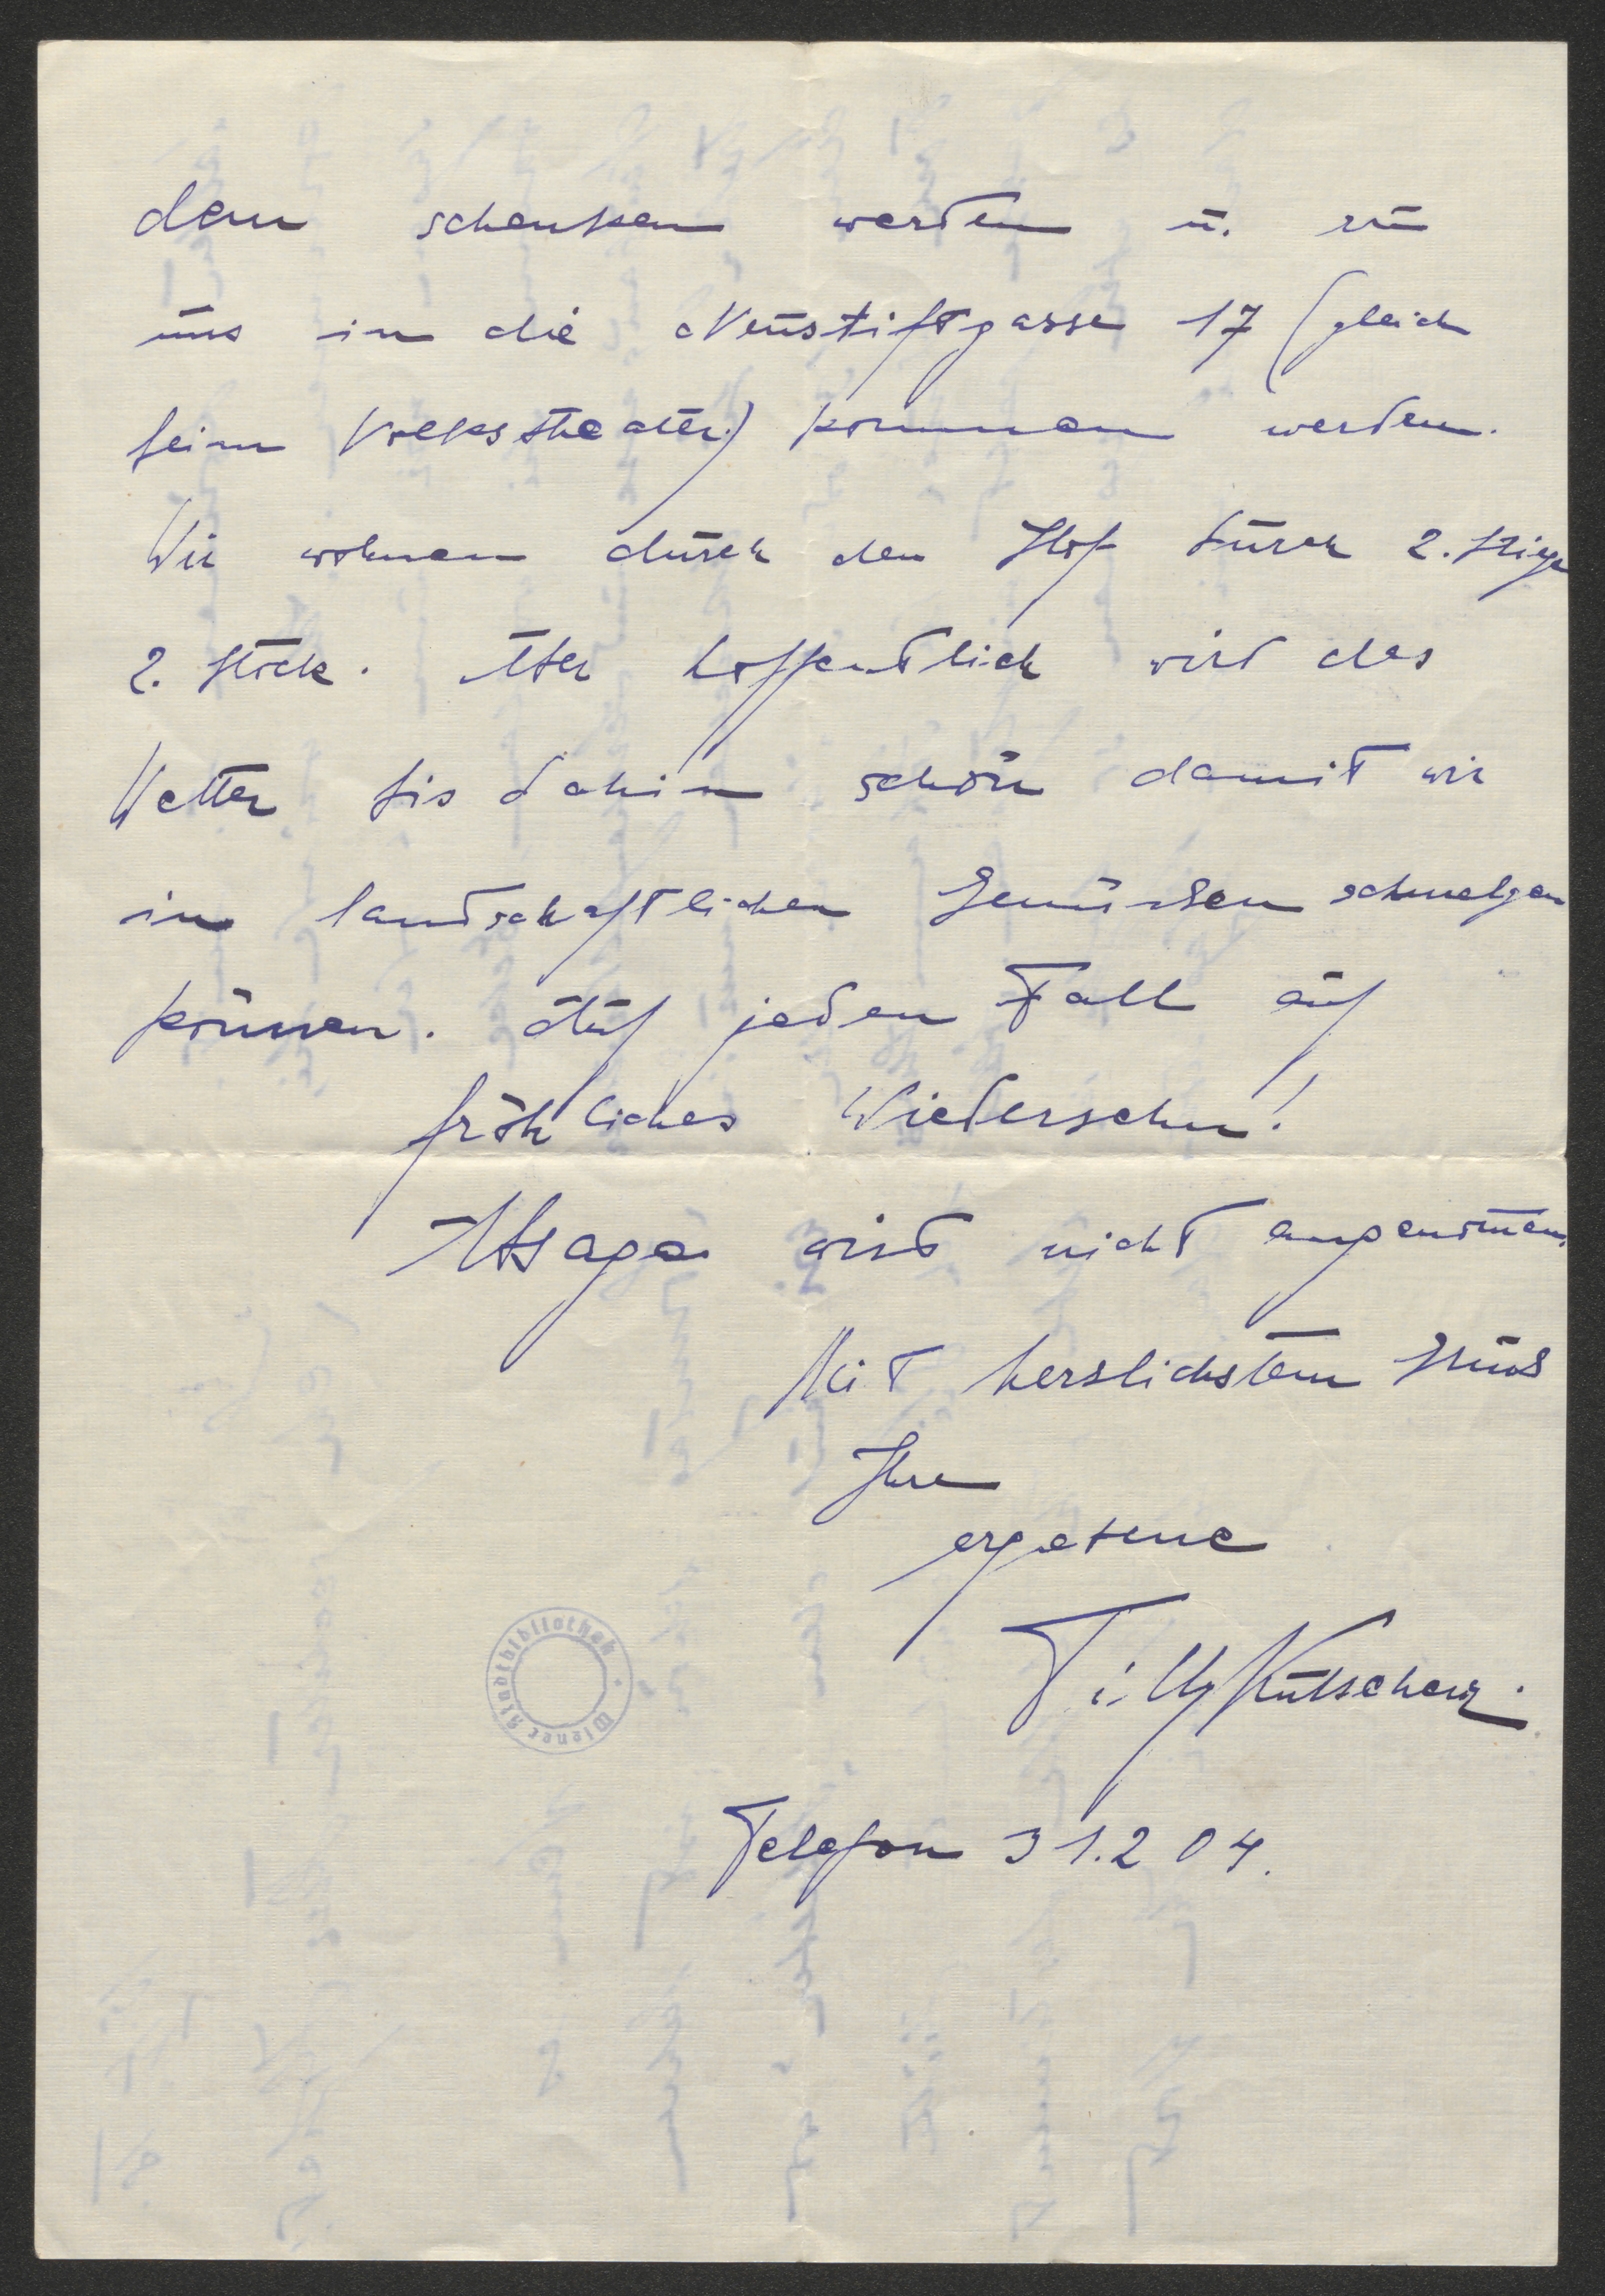 dann schenken werden u. zu
uns in die Neustiftgasse 17 (gleich
beim Volkstheater) kommen werden.
Wir wohnen durch den Hof durch 2. Stiege
2. Stock. Aber hoffentlich wird das
Wetter bis dahin schön damit wir
in landschaftlichen Genüssen schwelgen
können. Auf jeden Fall auf
fröhliches Wiedersehn!
Absage wird nicht angenommen.
Mit herzlichstem Gruß
Ihre
ergebene
Tilly Kutschera.
Wiener Stadtbibliothek
Telefon 31.2 04.